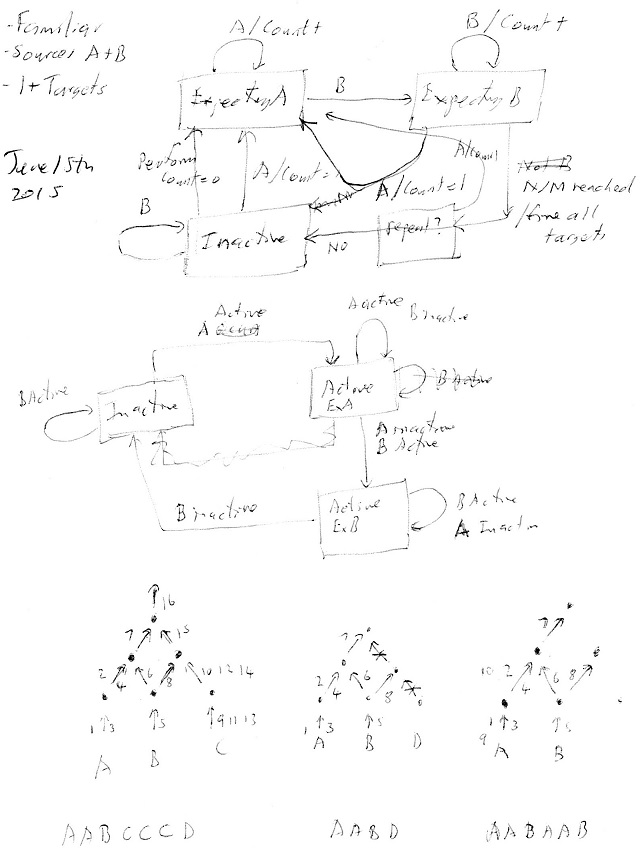 - Familiar
- Sources A+B
- 1+ Targets
June 15th
2015
A/Count+
B/Count+
Expecting A
B
Expecting B
Perform
Count=0
A/Count=
A/Count=1
A/Count1
Not B
N/M reached
/fire all
targets
B
Inactive
NO
repeat?
Active
A
A active
B inactive
B Active
Inactive
Active
ExA
B Active
A inactive
B Active
B inactive
Active
ExB
B Active
A Inactive
16
7 15
2 4 6 8 10 12 14
1 3 5 9 11 13
A B C
7
2 4 6 8
1 3 5
A B D
7
10 2 4 6 8
1 3 5
9
A B
AABCCCD
AABD
AABAAB